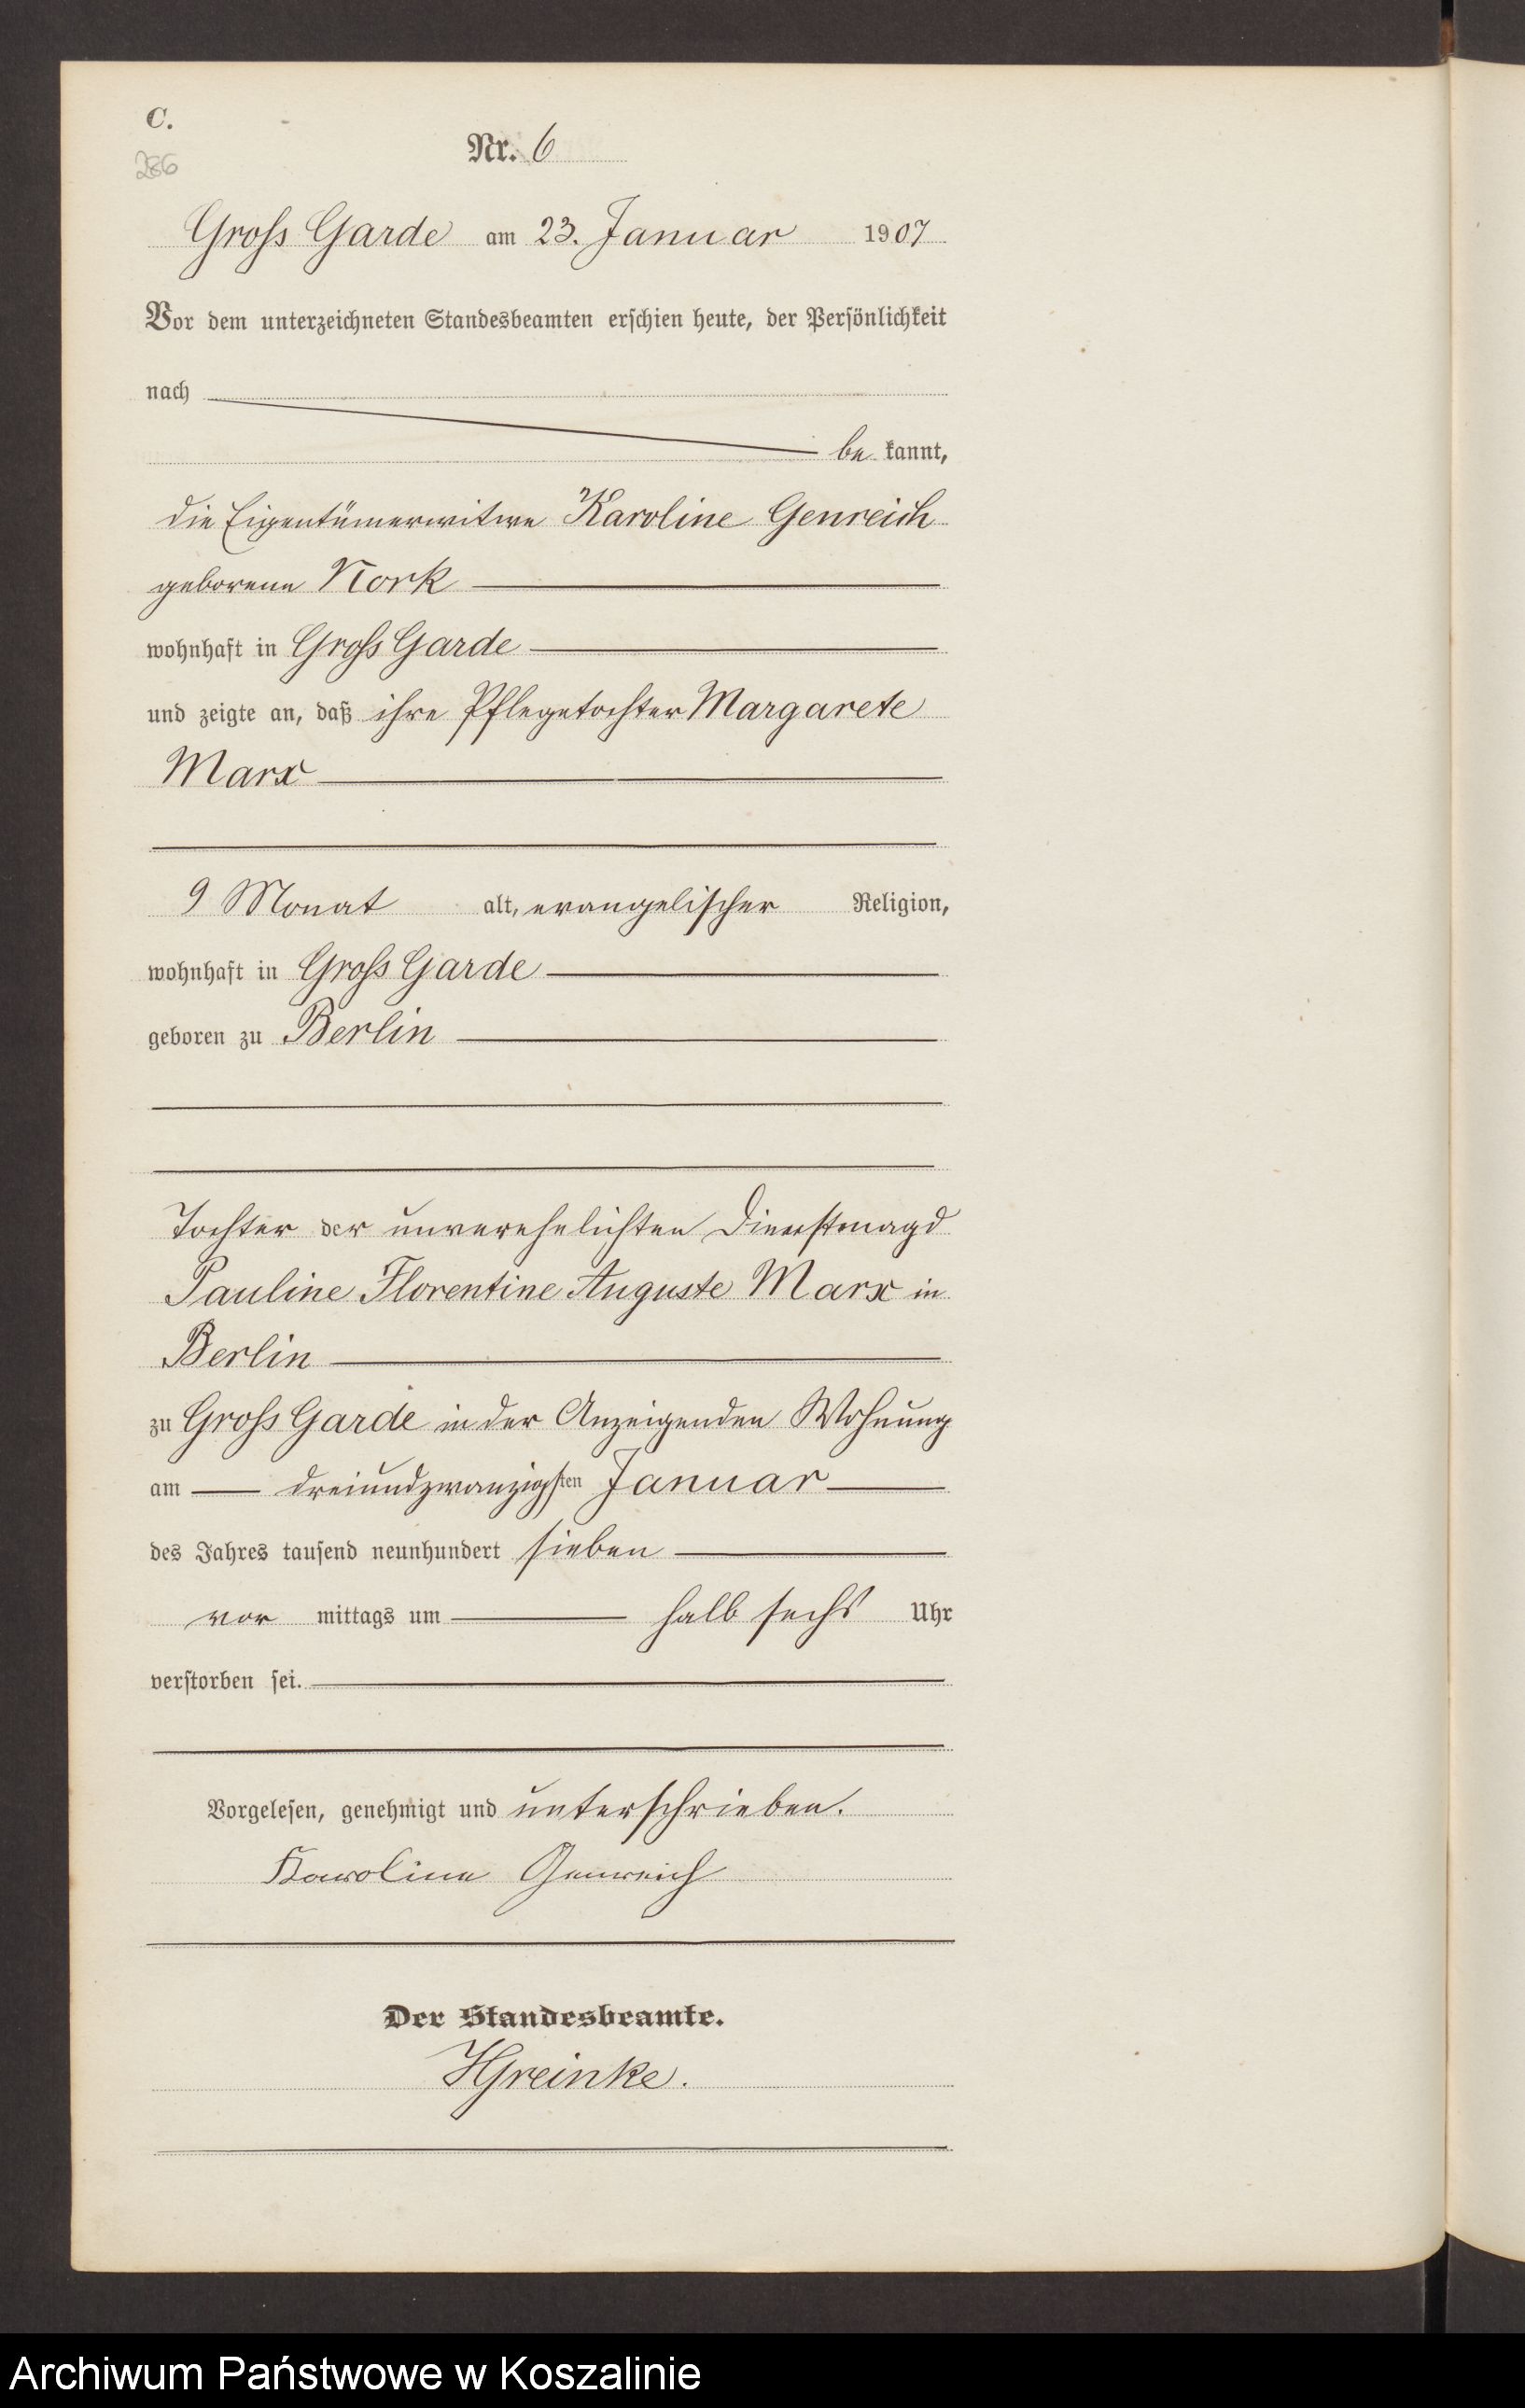 C.
286
Nr. 6
Gross Garde am 23. Januar 1907
Vor dem unterzeichneten Standesbeamten erschien heute, der Persönlichkeit
nach
be kannt,
die Eigentümerwitwe Karoline Genreich
geborene Nork
wohnhaft in Gross Garde
und zeigte an, daß ihre Pflegetochter Margarete
Marx
9 Monat alt, evangelischer Religion,
wohnhaft in Gross Garde
geboren zu Berlin
Tochter der unverehelichten Dienstmagd
Pauline Florentine Auguste Marx in
Berlin
zu Gross Garde in der Anzeigenden Wohnung
am dreiundzwanzigsten Januar
des Jahres tausend neunhundert sieben
vor mittags um halb sechs Uhr
verstorben sei.
Vorgelesen, genehmigt und unterschrieben.
Karoline Genreich
Der Standesbeamte.
HGreinke.
Archiwum Państwowe w Koszalinie